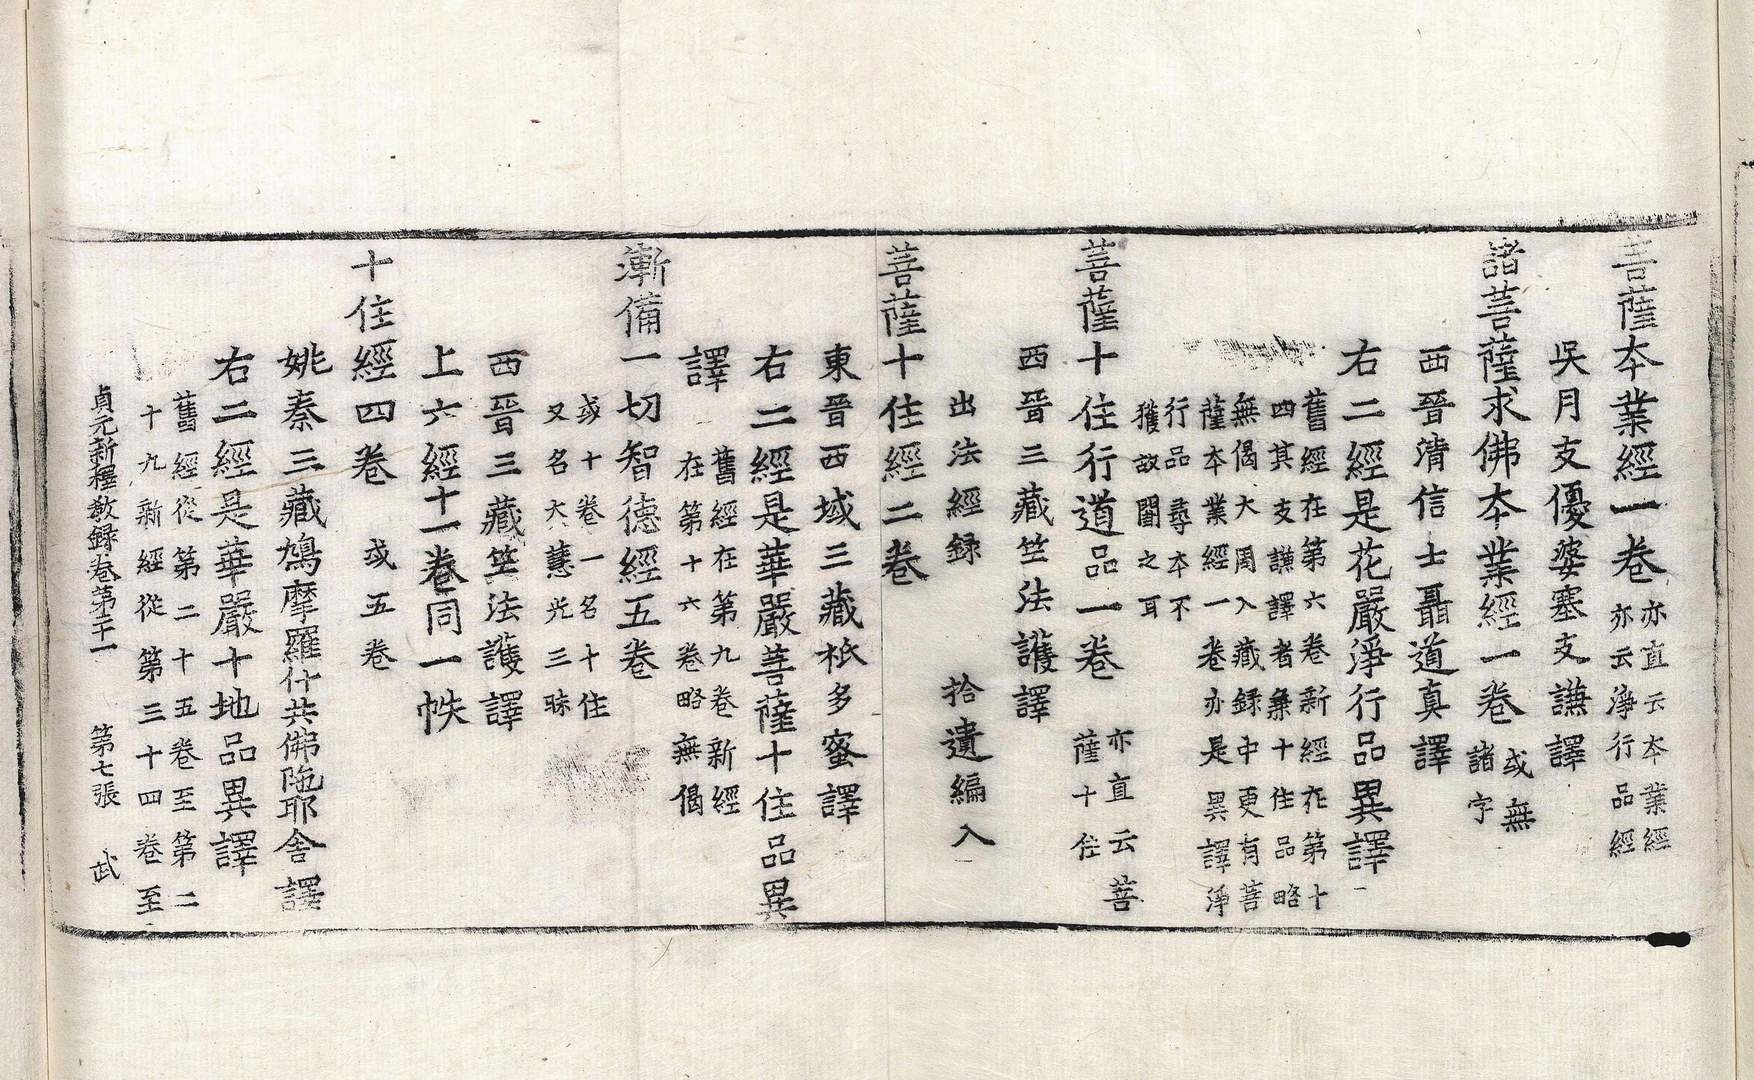 菩薩本業經一卷 亦直云本業經
亦云淨行品經
吳月支優婆塞支謙譯
諸菩薩求佛本業經一卷 或無
諸字
西晉清信士聶道真譯
右二經是花嚴淨行品異譯
舊經在第六卷新經在第十
四其支謙譯者兼十住品略
無偈大周入藏録中更有菩
薩本業經一卷亦是異譯淨
行品尋本不
獲故闕之耳
菩薩十住行道品一卷 亦直云菩
薩十住
西晉三藏竺法護譯
出法經録 拾遺編入
菩薩十住經二卷
東晉西域三藏祇多蜜譯
右二經是華嚴菩薩十住品異
譯 舊經在第九卷新經
在第十六卷略無偈
漸備一切智德經五卷
或十卷一名十住
又名大慧光三昧
西晉三藏竺法護譯
上六經十一卷同一帙
十住經四卷 或五卷
姚秦三藏鳩摩羅什共佛陁耶舍譯
右二經是華嚴十地品異譯
舊經從第二十五卷至第二
十九新經從第三十四卷至
貞元新釋教録卷第二十一 第七張 武